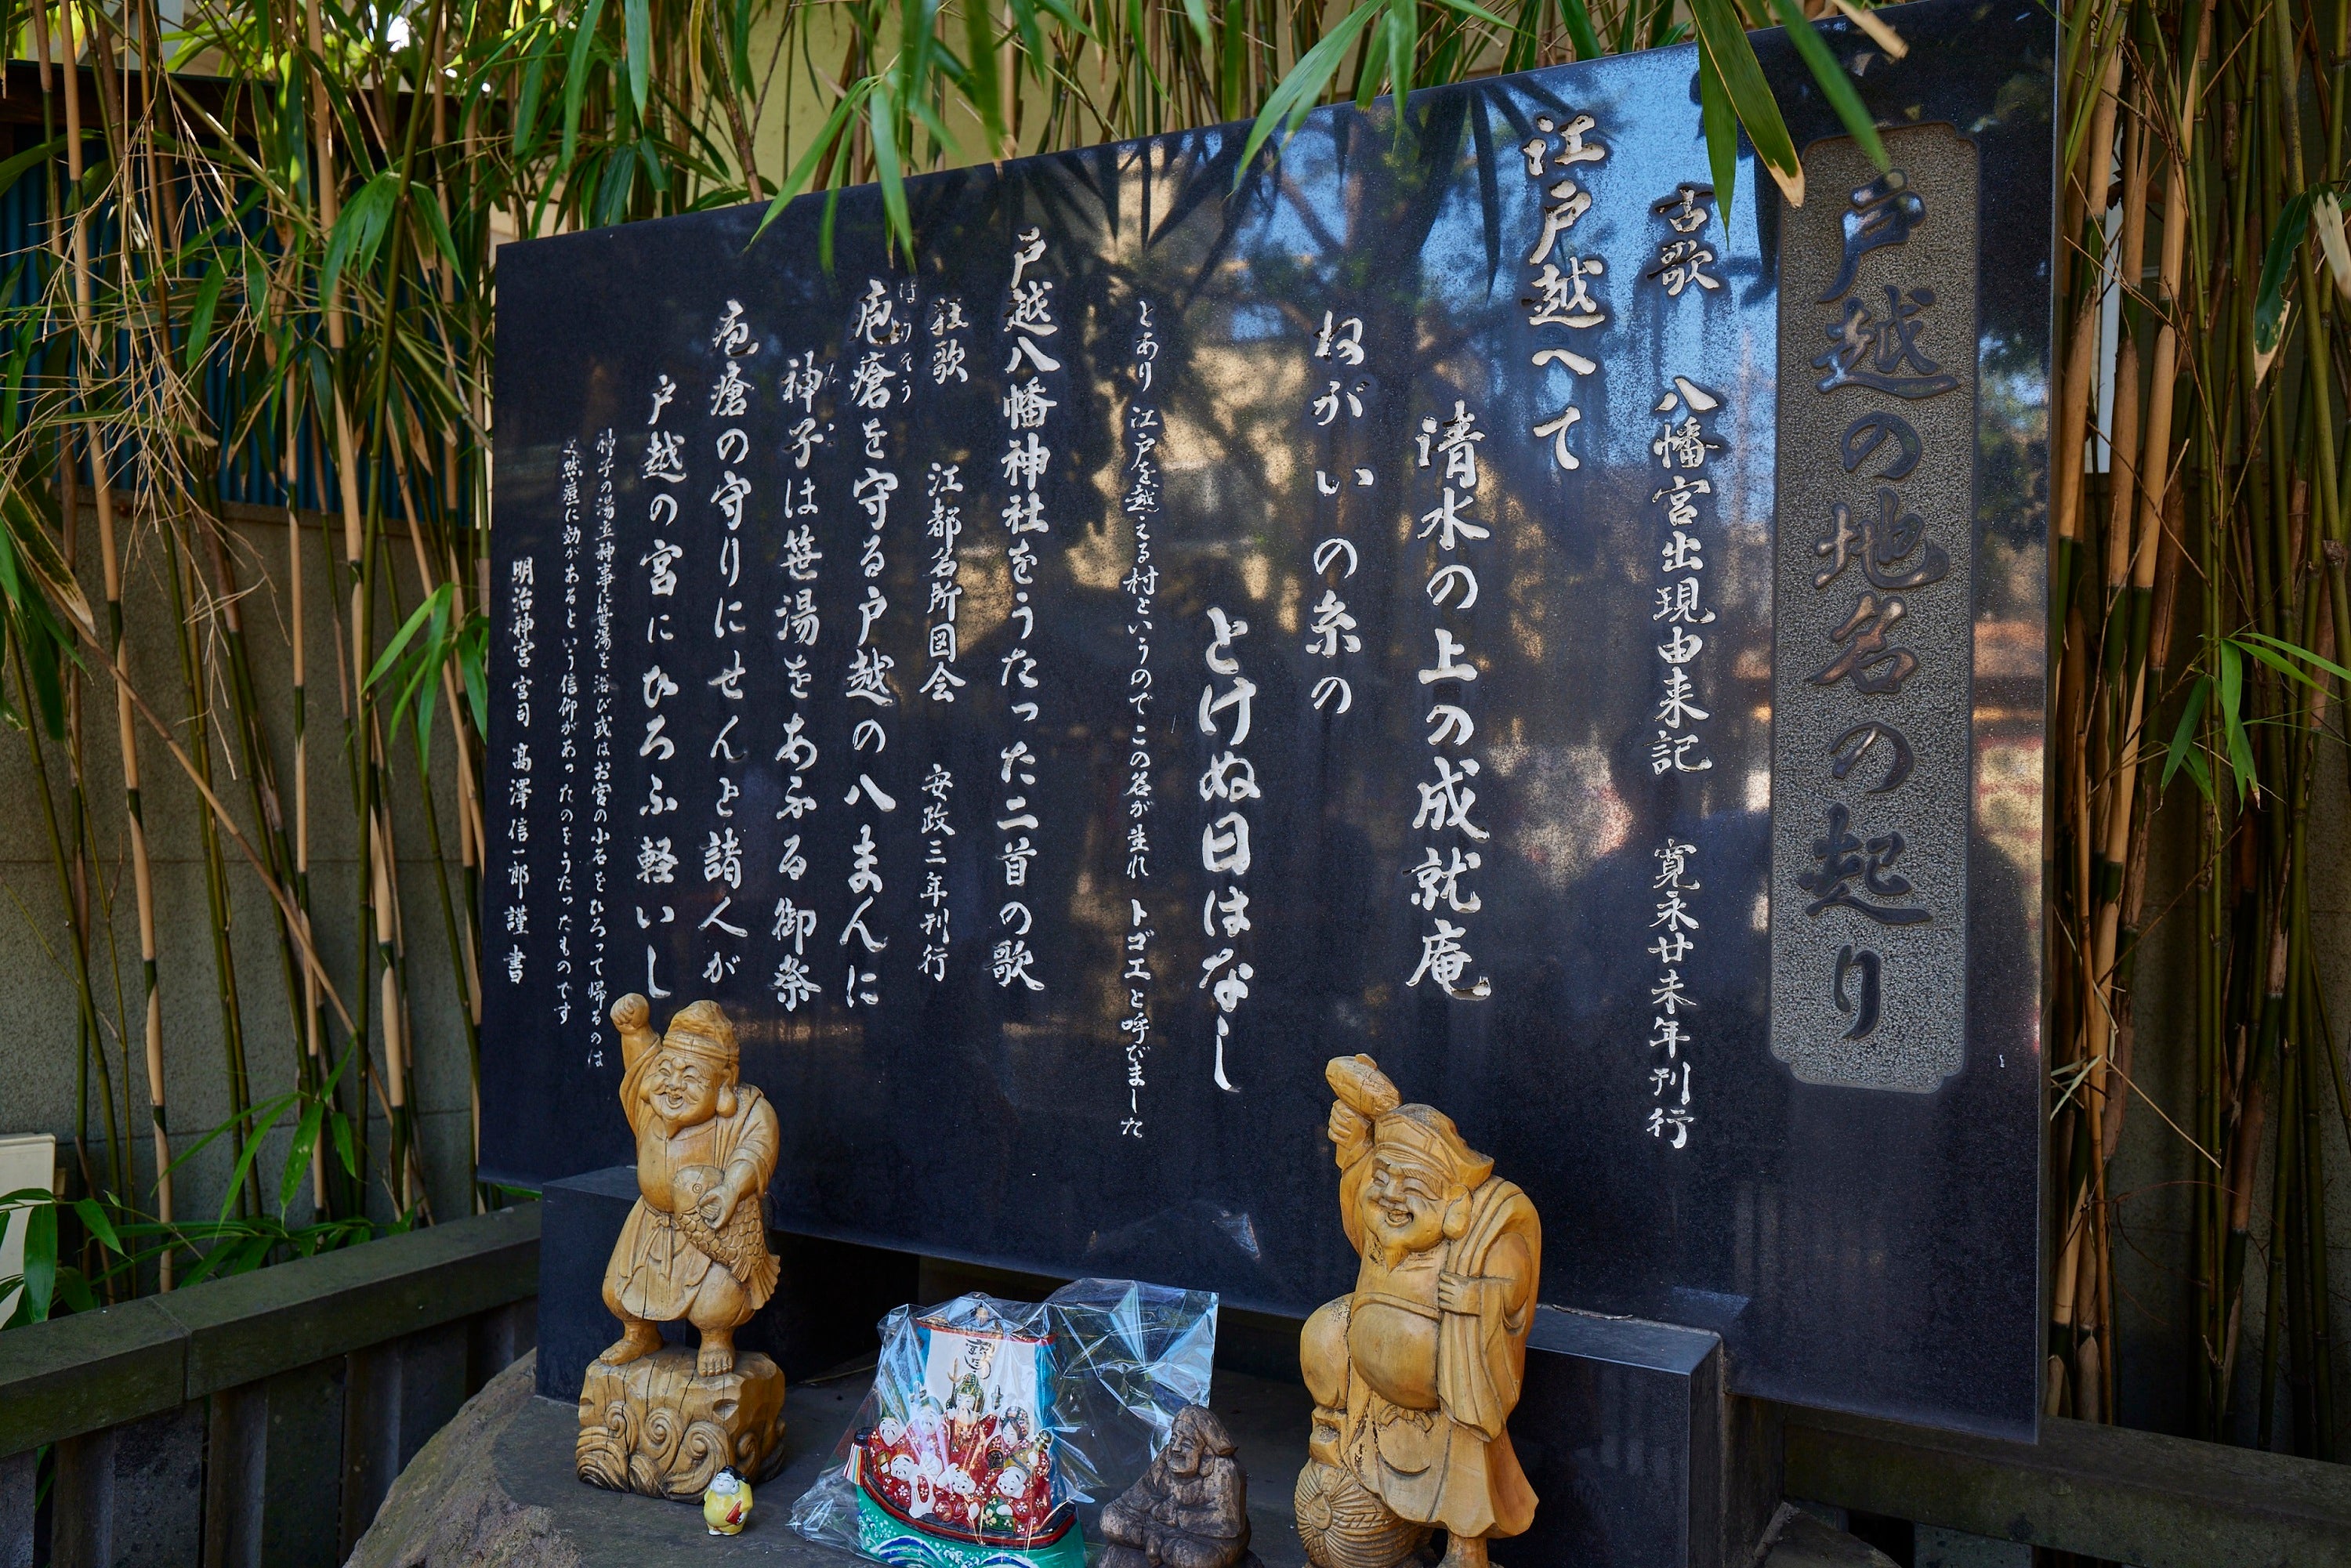 戸越の地名の起り
古歌 八幡宮出現由来記 寛永廿未年刊行
江戸越へて
清水の上の成就庵
ねがいの糸の
とけぬ日はなし
とあり 江戸を越える村というのでこの名が生れ トゴエと呼びました
戸越八幡神社をうたった二首の歌
狂歌 江都名所図会 安政三年刊行
疱瘡を守る戸越の八まんに
ほうそう
神子は笹湯をあふる御祭
みこ
疱瘡の守りにせんと諸人が
戸越の宮にひろふ軽いし
神子の湯立神事に笹湯を浴び或はお宮の小石をひろって帰るのは
天然痘に効があるという信仰があったのをうたったものです
明治神宮宮司 高澤信一郎謹書
寳